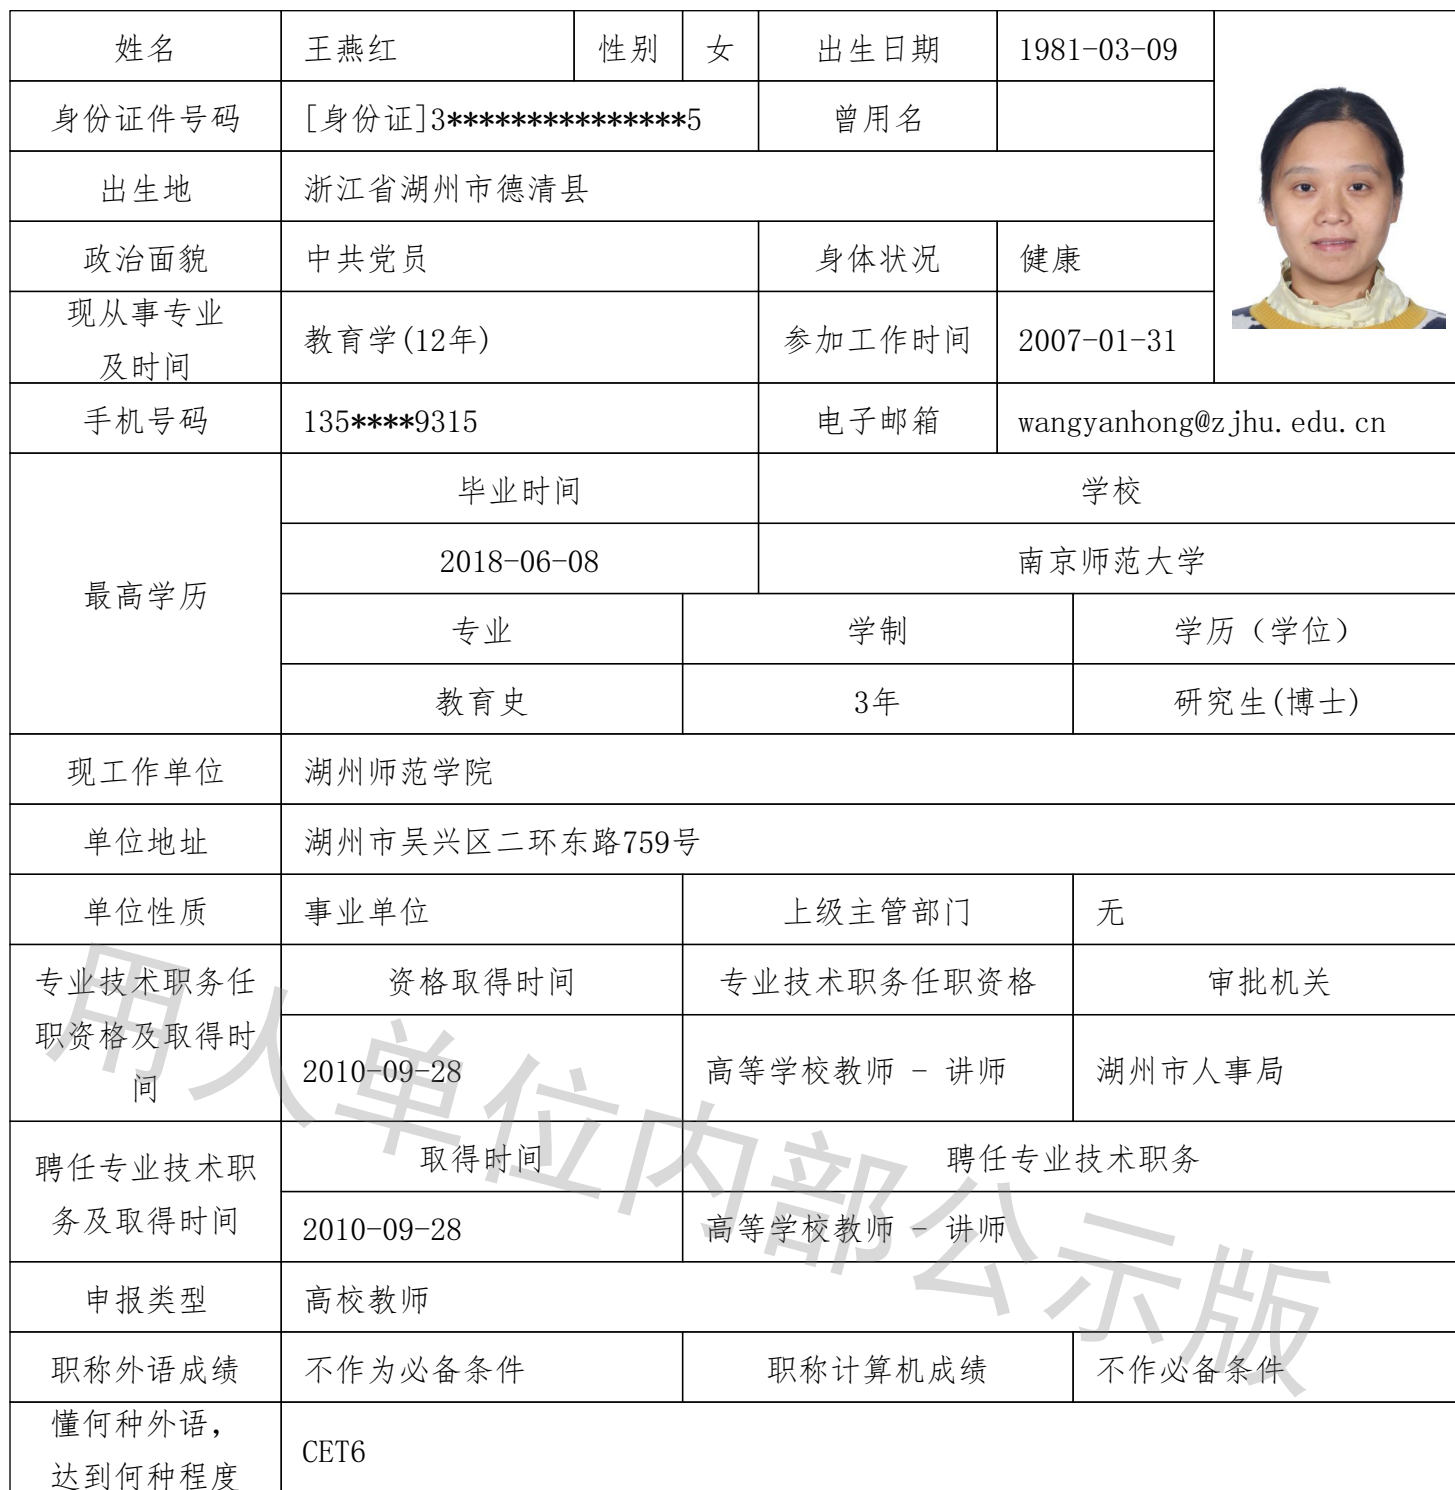 姓名 王燕红 性别 女 出生日期 1981-03-09
身份证件号码 [身份证]3***************5 曾用名
出生地 浙江省湖州市德清县
政治面貌 中共党员 身体状况 健康
现从事专业
及时间
教育学(12年) 参加工作时间 2007-01-31
手机号码 135****9315 电子邮箱 wangyanhong@zjhu.edu.cn
最高学历
毕业时间 学校
2018-06-08 南京师范大学
专业 学制 学历（学位）
教育史 3年 研究生(博士)
现工作单位 湖州师范学院
单位地址 湖州市吴兴区二环东路759号
单位性质 事业单位 上级主管部门 无
专业技术职务任
职资格及取得时
间
资格取得时间 专业技术职务任职资格 审批机关
2010-09-28 高等学校教师 - 讲师 湖州市人事局
聘任专业技术职
务及取得时间
取得时间 聘任专业技术职务
2010-09-28 高等学校教师 - 讲师
申报类型 高校教师
职称外语成绩 不作为必备条件 职称计算机成绩 不作必备条件
懂何种外语，
达到何种程度
CET6
用人单位内部公示版